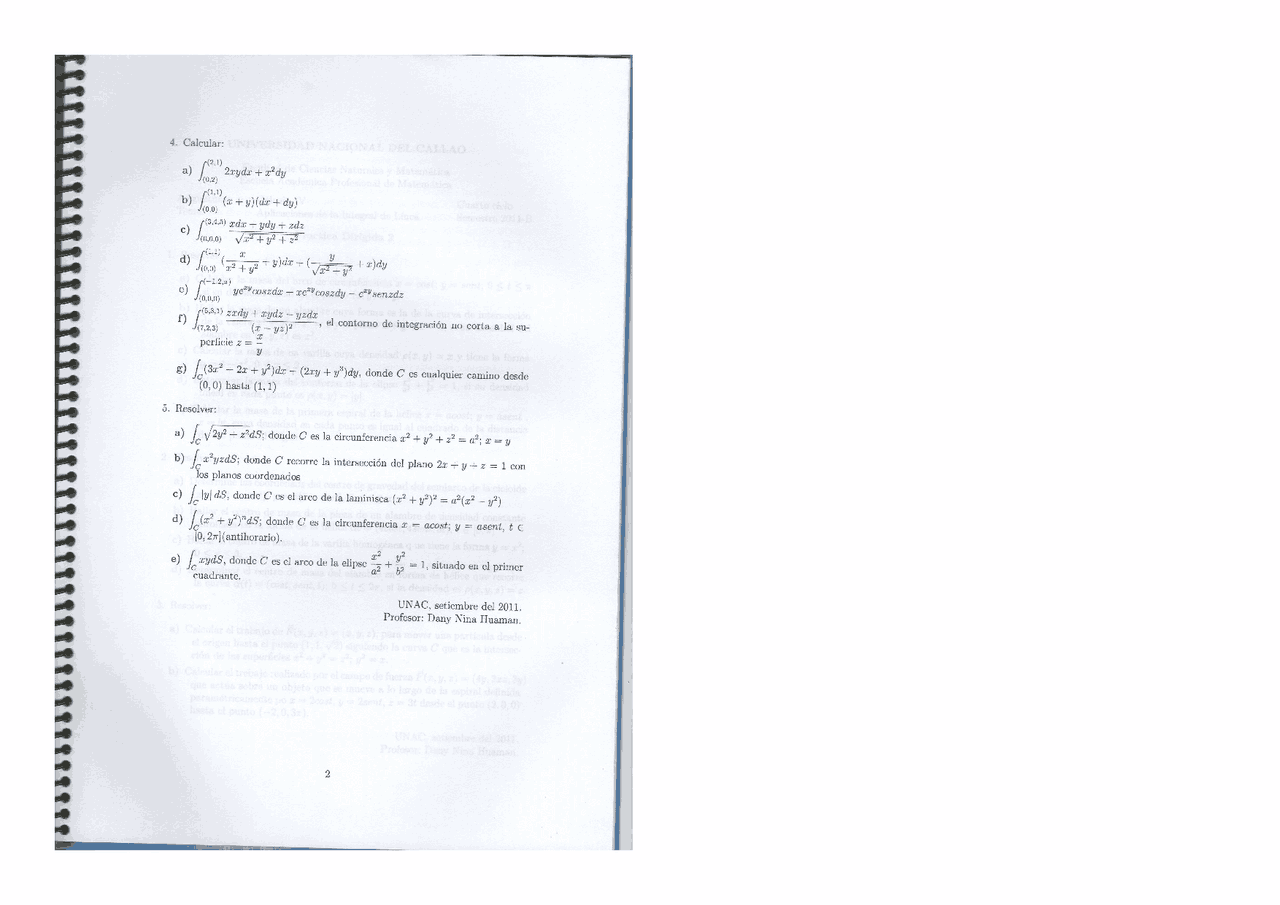 4. Calcular:
a) ∫_{(0,2)}^{(2,1)} 2xydx + x²dy
b) ∫_{(0,0)}^{(1,1)} (x + y)(dx + dy)
c) ∫_{(0,0,0)}^{(3,4,5)} (xdx + ydy + zdz)/√(x² + y² + z²)
d) ∫_{(0,0)}^{(1,1)} (x/(x² + y²) + y)dx + (y/√(x² + y²) + x)dy
e) ∫_{(0,0,0)} ye^{xy}coszdx − xe^{xy}coszdy − e^{xy}senzdz
f) ∫_{(7,2,3)}^{(5,3,1)} (zxdy + xydz − yzdx)/(x − yz)², el contorno de integración no corta a la su-
perficie z = x/y
g) ∫_C (3x² − 2x + y²)dx − (2xy + y³)dy, donde C es cualquier camino desde
(0, 0) hasta (1, 1)
5. Resolver:
a) ∫_C √(2y² + z²)dS; donde C es la circunferencia x² + y² + z² = a²; x = y
b) ∫_C x²yzdS; donde C recorre la intersección del plano 2x + y + z = 1 con
los planos coordenados
c) ∫_C |y| dS, donde C es el arco de la laminisca (x² + y²)² = a²(x² − y²)
d) ∫_C (x² + y²)ⁿdS; donde C es la circunferencia x = acost; y = asent, t ∈
[0, 2π](antihorario).
e) ∫_C xydS, donde C es el arco de la elipse x²/a² + y²/b² = 1, situado en el primer
cuadrante.
UNAC, setiembre del 2011.
Profesor: Dany Nina Huaman.
2